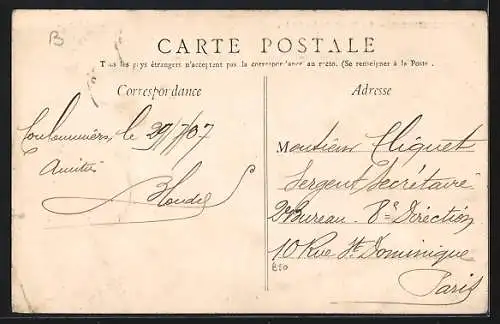 B
CARTE POSTALE
Tous les pays étrangers n'acceptent pas la correspondance au recto. (Se renseigner à la Poste.
Correspondance
Adresse
Coulommiers, le 29/7/07
Amitiés
Monsieur Cliquet
Sergent Secrétaire
2e Bureau. 8e Direction
10 Rue St. Dominique
Paris